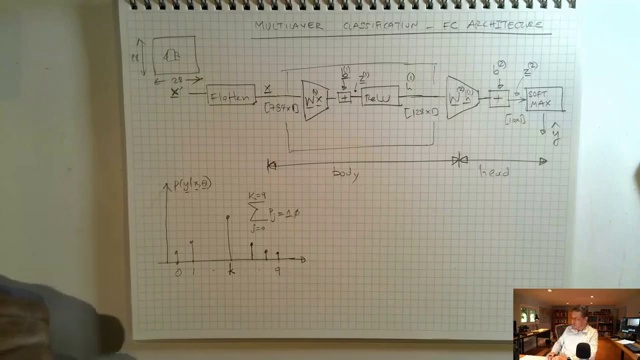 MULTILAYER CLASSIFICATION - FC ARCHITECTURE
28
28
X Flatten x [784x1] W(1) x + b(1) z(1) ReLU h(1) [128x1] W(2) h(1) + b(2) z(2) [10x1] SOFT MAX
ŷ
body head
P(y|x,θ)
K=9
Σ Pj = 1.0
j=0
0 1 k 9